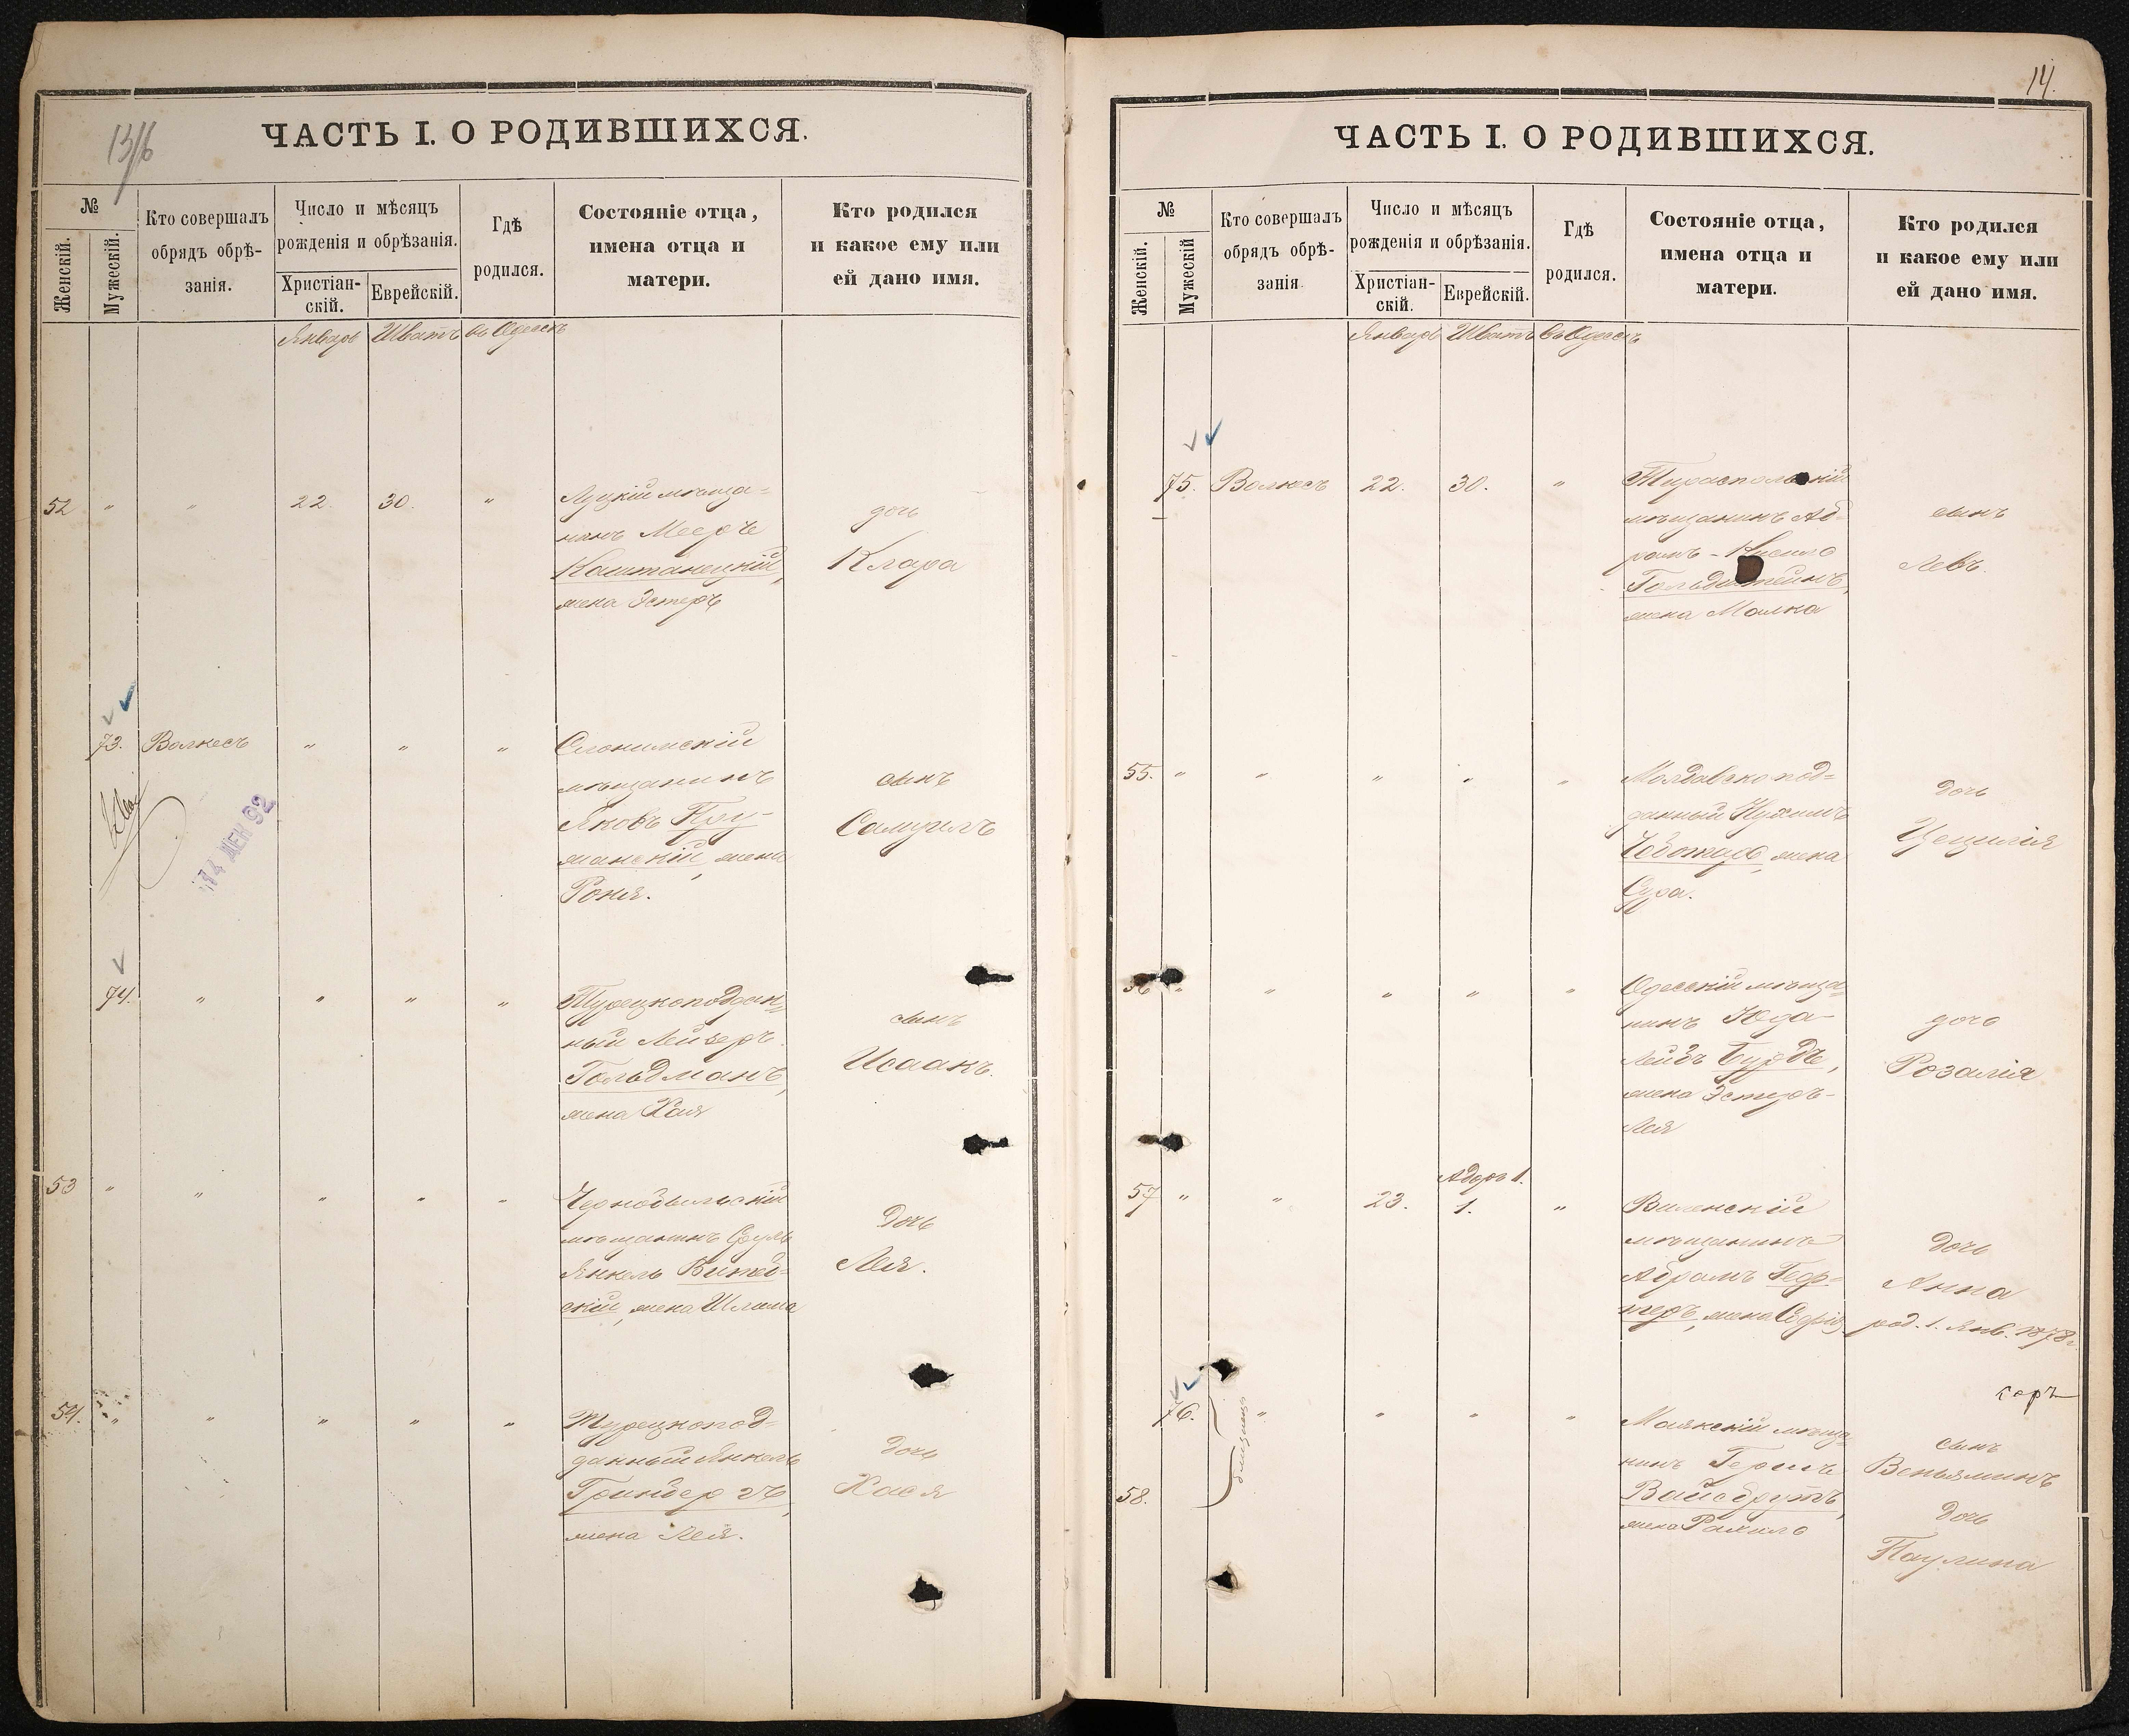 13/6
ЧАСТЬ I. О РОДИВШИХСЯ.
№
Женскій.
Мужескій.
Кто совершалъ
обрядъ обрѣ-
занія.
Число и мѣсяцъ
рожденія и обрѣзанія.
Христіан-
скій.
Еврейскій.
Гдѣ
родился.
Состояніе отца,
имена отца и
матери.
Кто родился
и какое ему или
ей дано имя.
Январь Шватъ въ Одессѣ
52 " " 22 30. "
Луцкій мѣща-
нинъ Мееръ
Каштанецкій,
жена Эстеръ
дочь
Клара
73. Волкесъ " " "
Слонимскій
мѣщанинъ
Яковъ Кру-
манскій, жена
Роня.
сынъ
Самуилъ
14 ДЕК 92
74. " " " "
Турецкоподдан-
ный Лейзеръ
Гольдманъ,
жена Хая
сынъ
Исаакъ.
53 " " " " "
Чернобыльскій
мѣщанинъ Сруль
Янкель
скій, жена Шлима
дочь
Лея.
54. " " " " "
Турецкопод-
данный Янкель
Гринбергъ,
жена Лея.
дочь
Хася
14.
ЧАСТЬ I. О РОДИВШИХСЯ.
№
Женскій.
Мужескій
Кто совершалъ
обрядъ обрѣ-
занія
Число и мѣсяцъ
рожденія и обрѣзанія.
Христіан-
скій.
Еврейскій.
Гдѣ
родился.
Состояніе отца,
имена отца и
матери.
Кто родился
и какое ему или
ей дано имя.
Январь Шватъ въ Одессѣ
75. Волкесъ 22. 30. "
Тираспольскій
мѣщанинъ Аб-
рамъ-
Гольдштейнъ,
жена Малка
сынъ
Левъ.
55. " " " " "
Молдавскопод-
данный Нухимъ
жена
Сура.
дочь
Цецилія
56 " " " " "
Одесскій мѣща-
нинъ Юда-
Лейбъ Бурдъ,
жена Эстеръ-
Лея
дочь
Розалія
Адаръ 1.
57 " " 23. 1. "
Виленскій
мѣщанинъ
Абрамъ Гер-
теръ, жена Софія
дочь
Анна
род. 1. Янв. 1878 г.
76. " " " "
близнецы
58.
Маякскій мѣща-
нинъ Гершъ
Вайсбрутъ,
жена Рахиль
сынъ
Веньяминъ
дочь
Паулина